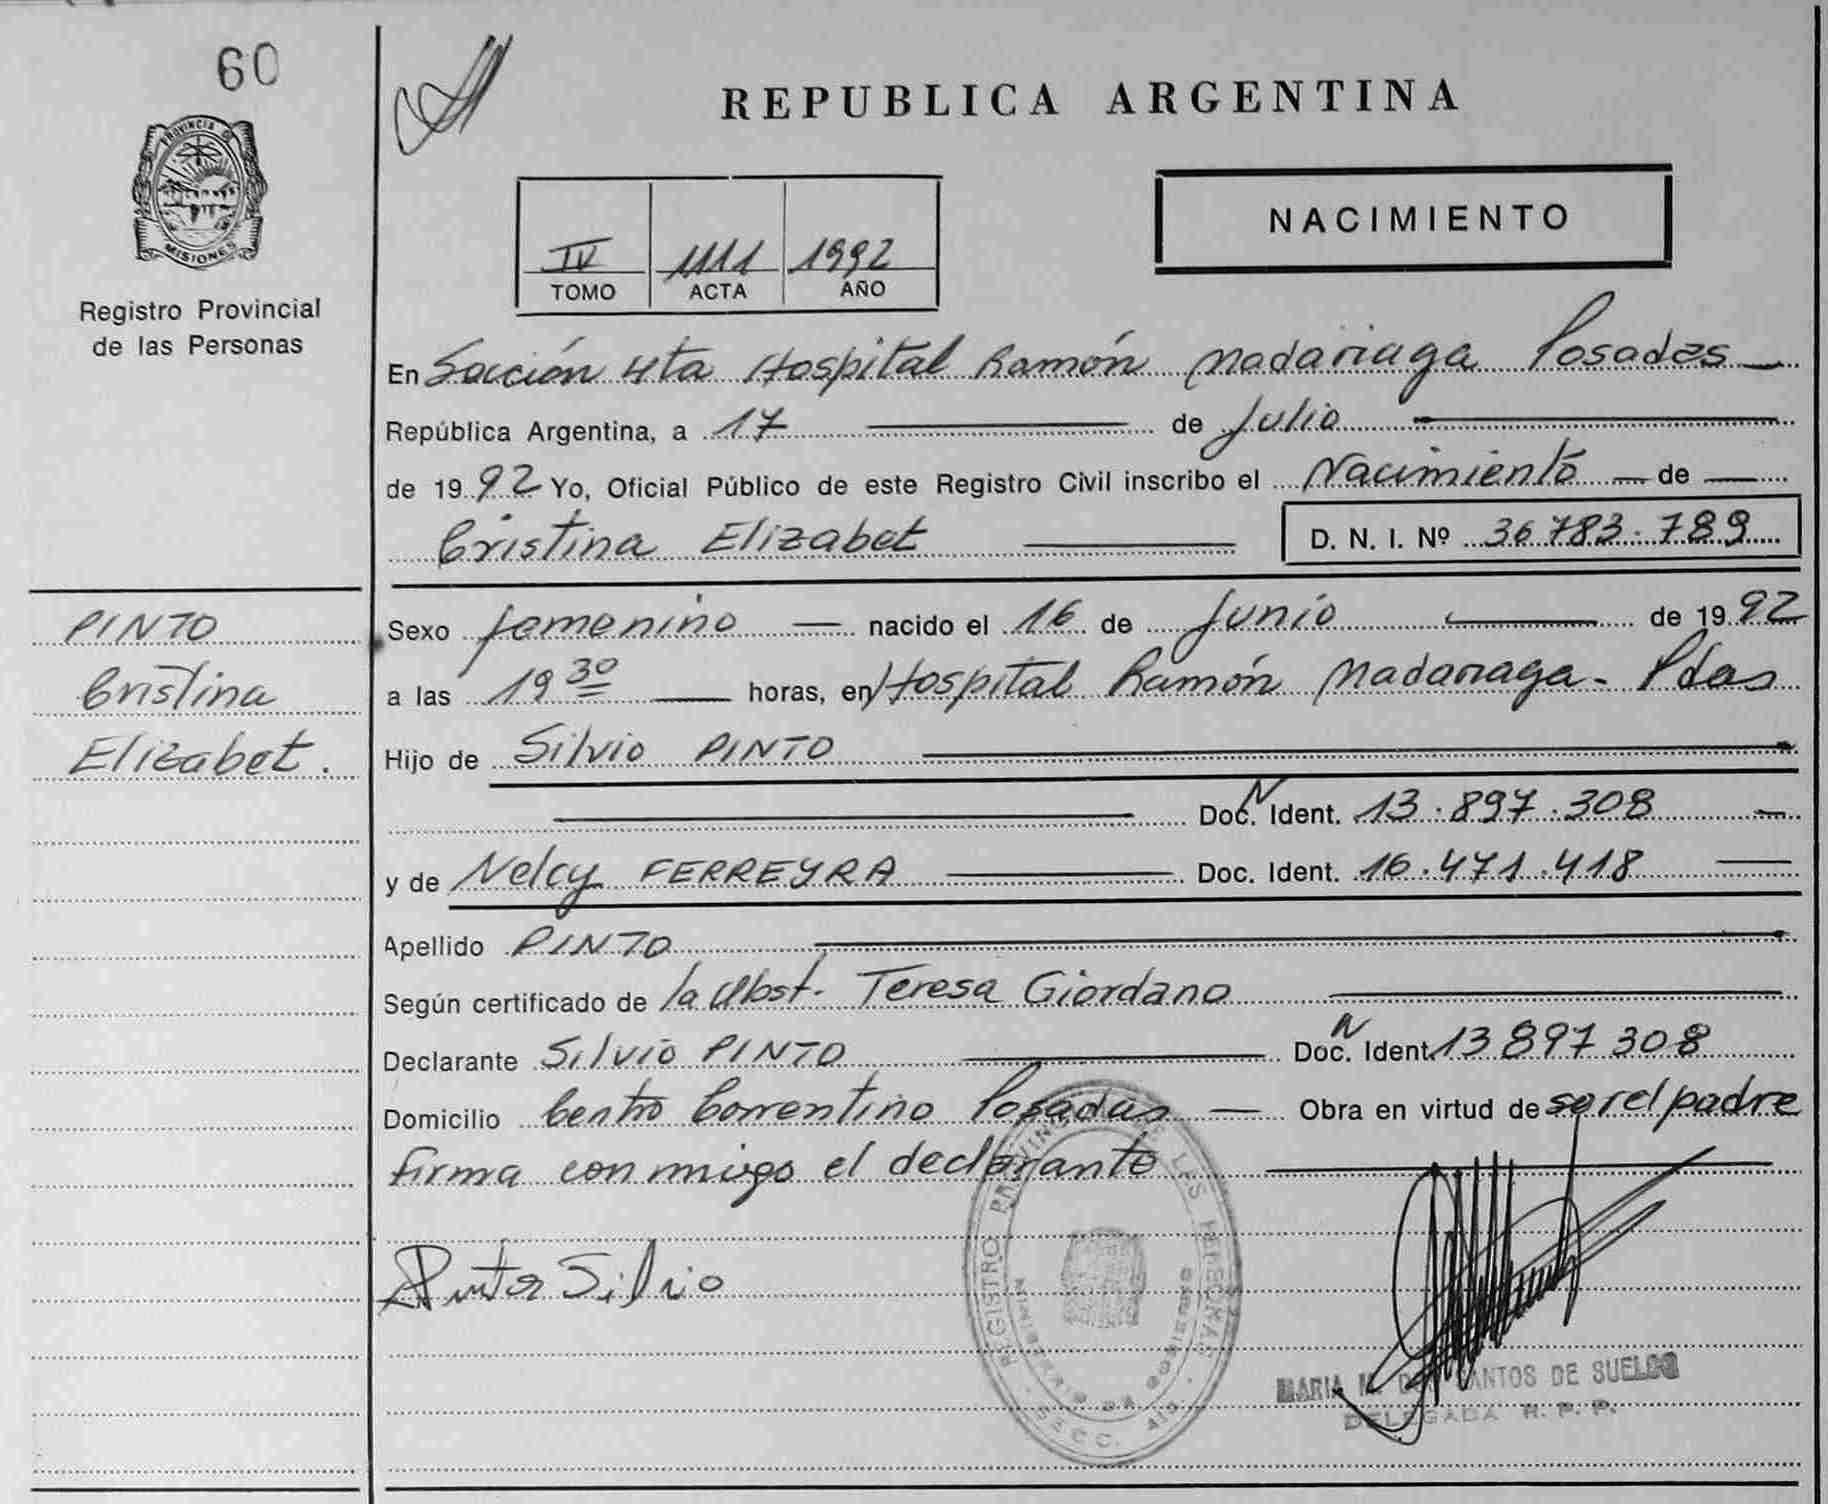 60
PROVINCIA D
MISIONES
Registro Provincial
de las Personas
REPUBLICA ARGENTINA
NACIMIENTO
IV 1111 1992
TOMO ACTA AÑO
En Sección 4ta Hospital Ramón Madariaga Posadas
República Argentina, a 17 de Julio
de 1992 Yo, Oficial Público de este Registro Civil inscribo el Nacimiento de
Cristina Elizabet D. N. I. Nº 36783.789
PINTO
Cristina
Elizabet.
Sexo femenino nacido el 16 de Junio de 1992
a las 19 30 horas, en Hospital Ramón Madariaga - Pdas
Hijo de Silvio PINTO
Doc. N Ident. 13.897.308
y de Nelcy FERREYRA Doc. Ident. 16.471.418
Apellido PINTO
Según certificado de la Obst. Teresa Giordano
Declarante Silvio PINTO Doc. N Ident. 13897308
Domicilio Centro Correntino Posadas Obra en virtud de ser el padre
firma conmigo el declarante
Pinto Silvio
REGISTRO PROVINCIAL DE LAS PERSONAS
MINISTERIO DE GOBIERNO
SECC. 4ta.
MARIA M. DOS SANTOS DE SUELDO
DELEGADA R. P. P.